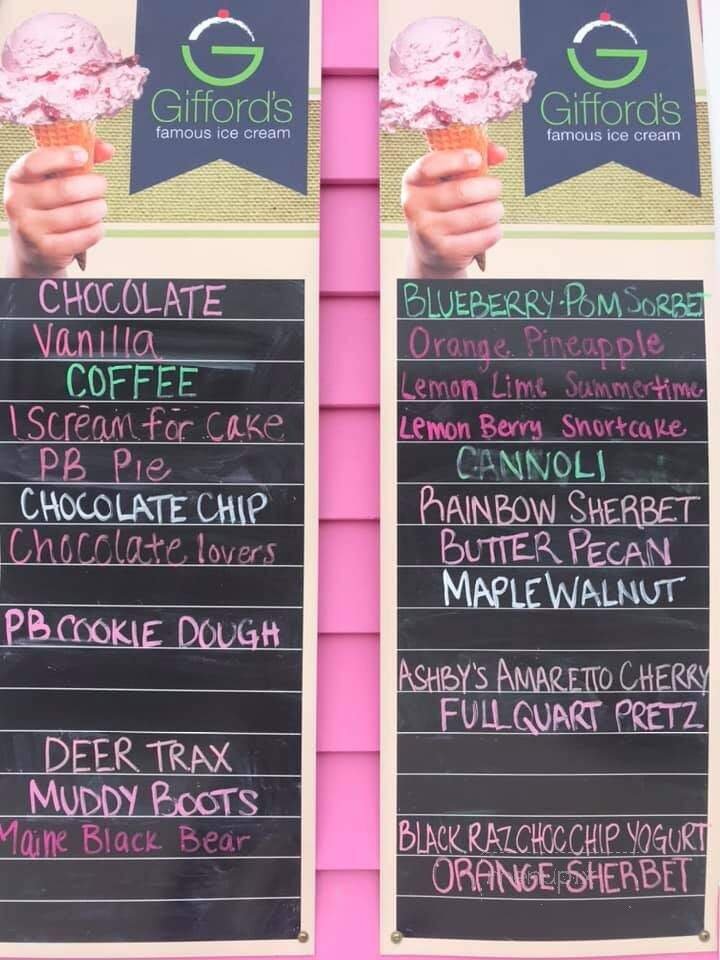 Gifford's
famous ice cream
CHOCOLATE
Vanilla
COFFEE
I Scream for Cake
PB Pie
CHOCOLATE CHIP
Chocolate lovers
PB COOKIE DOUGH
DEER TRAX
MUDDY BOOTS
Maine Black Bear
Gifford's
famous ice cream
BLUEBERRY-POM SORBET
Orange Pineapple
Lemon Lime Summertime
Lemon Berry Shortcake
CANNOLI
RAINBOW SHERBET
BUTTER PECAN
MAPLE WALNUT
ASHBY'S AMARETTO CHERRY
FULL QUART PRETZ
BLACK RAZ CHOC CHIP YOGURT
ORANGE SHERBET
menupix